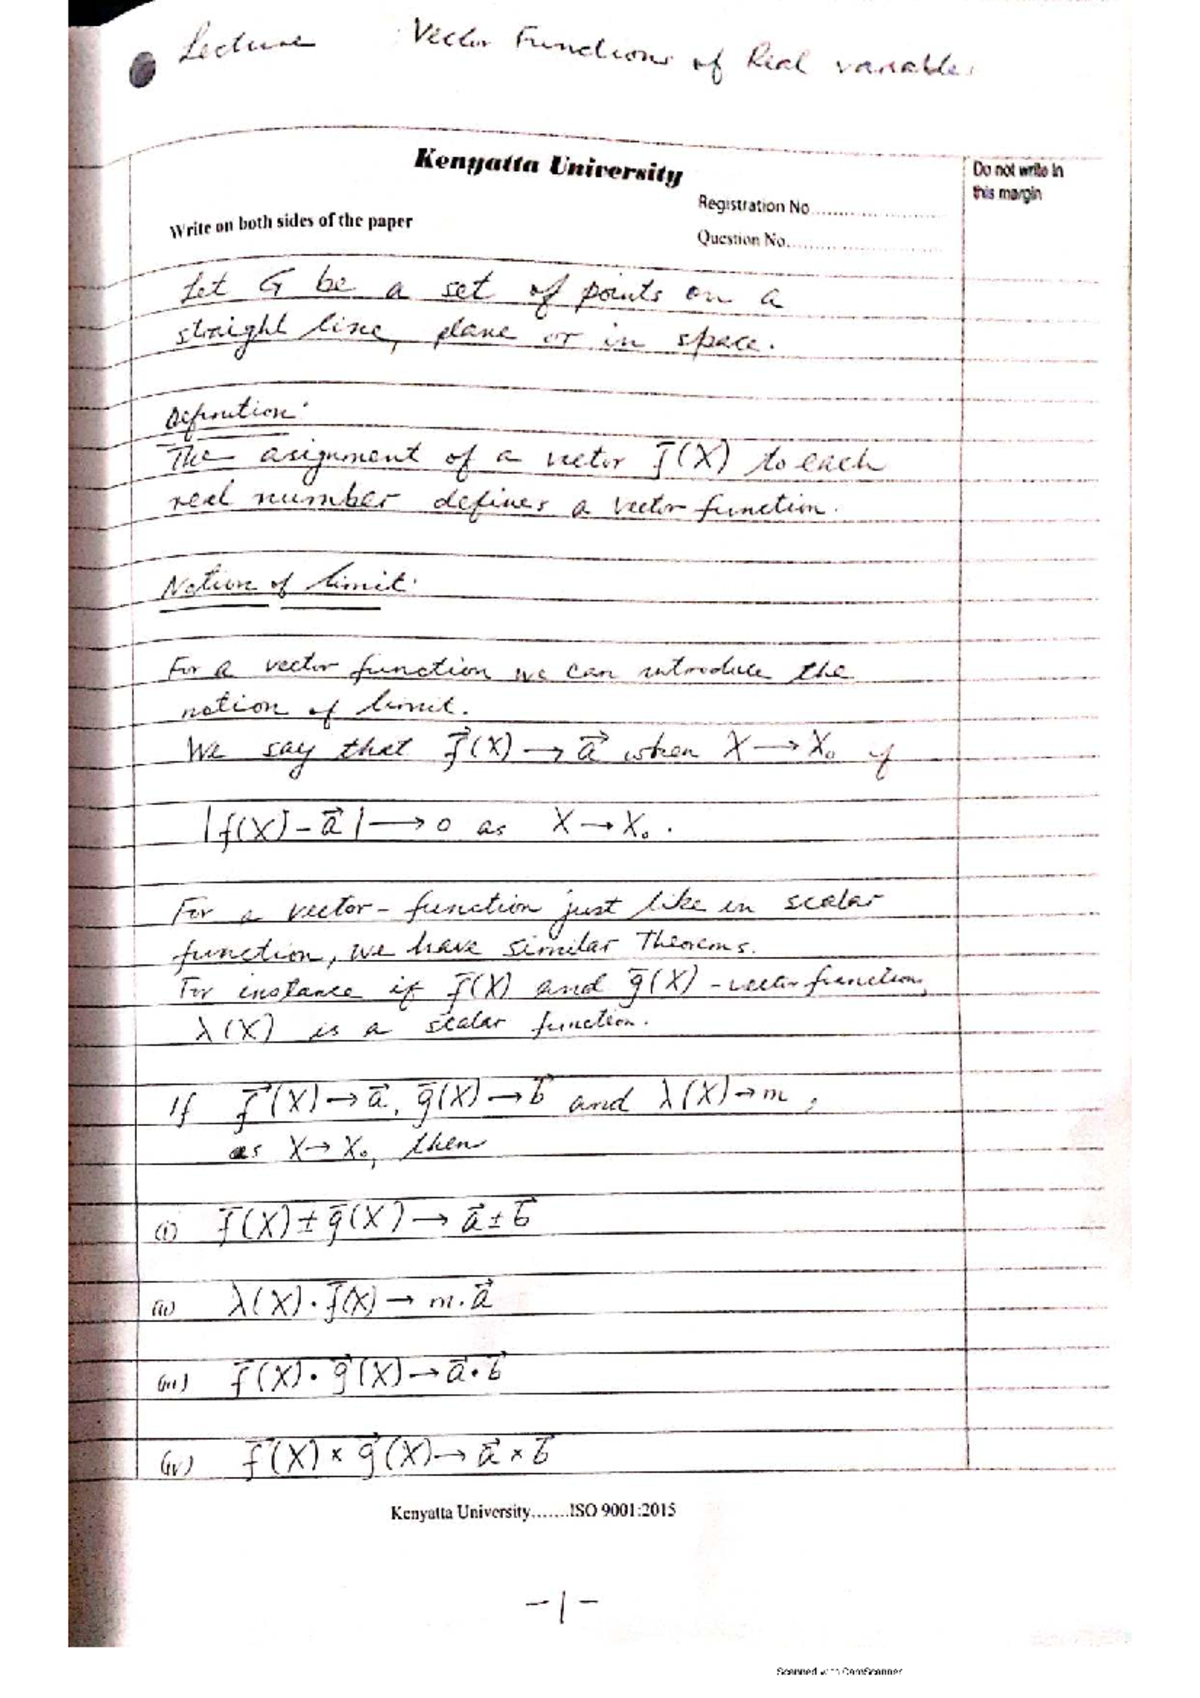 Lecture : Vector Functions of Real variables
Kenyatta University
Do not write in
this margin
Registration No
Write on both sides of the paper
Question No
Let G be a set of points on a
straight line, plane or in space.
Definition:
The asignment of a vector f̄(X) to each
real number defines a vector function.
Notion of limit:
For a vector function we can introduce the
notion of limit.
We say that f⃗(X) → a⃗ when X → X₀ if
|f(X) - a⃗| → 0 as X → X₀.
For a vector-function just like in scalar
function, we have similar Theorems.
For instance if f̄(X) and ḡ(X) - vector functions,
λ(X) is a scalar function.
If f⃗(X) → a⃗, ḡ(X) → b⃗ and λ(X) → m,
as X → X₀, then
(i) f̄(X) ± ḡ(X) → a⃗ ± b⃗
(ii) λ(X) · f̄(X) → m · a⃗
(iii) f̄(X) · g⃗(X) → a⃗ · b⃗
(iv) f⃗(X) × g⃗(X) → a⃗ × b⃗
Kenyatta University.......ISO 9001:2015
-1-
Scanned with CamScanner